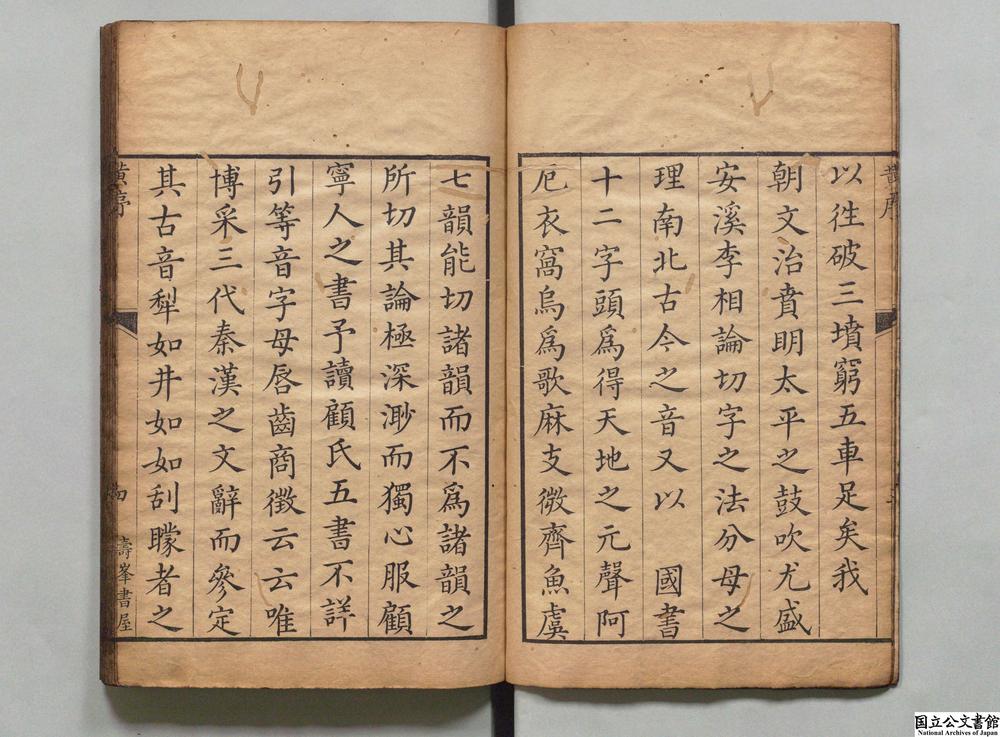 以徃破三墳窮五車足矣我
朝文治賁明太平之鼓吹尤盛
安溪李相論切字之法分母之
理南北古今之音又以 國書
十二字頭爲得天地之元聲阿
厄衣窩烏爲歌麻支微齊魚虞
七韻能切諸韻而不爲諸韻之
所切其論極深渺而獨心服顧
寧人之書予讀顧氏五書不詳
引等音字母唇齒商徵云云唯
博采三代秦漢之文辭而參定
其古音犁如井如如刮矇者之
黄序
四
壽峯書屋
国立公文書館
National Archives of Japan